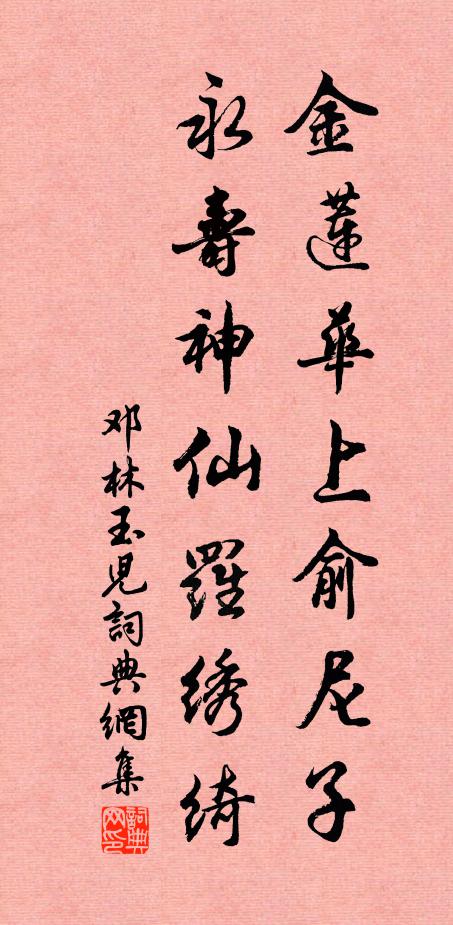 金蓮華上俞尼子
永壽神仙羅绣绮
邓林玉児詞典網集
詞典网印